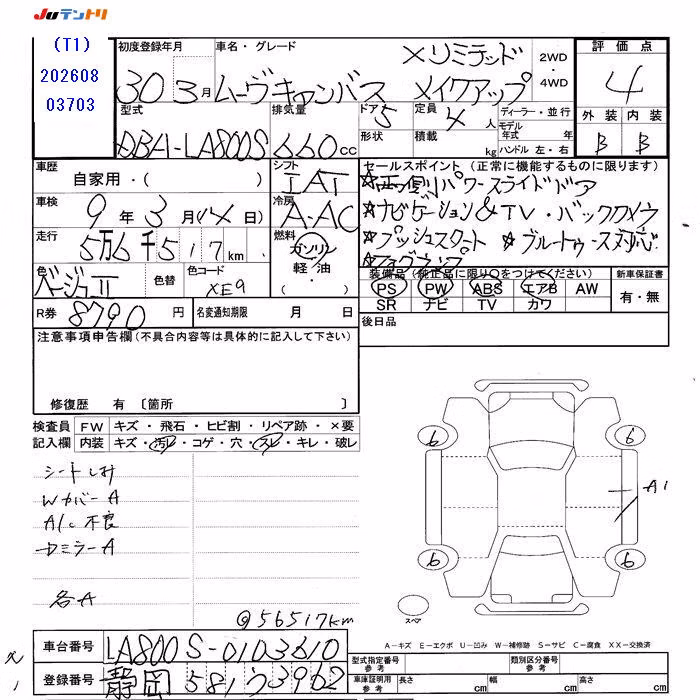 JUテントリ
(T1)
202608
03703
初度登録年月
30 3月
車名・グレード
Xリミテッド
ムーヴキャンバス メイクアップ
2WD
・
4WD
評価点
4
外装 内装
B B
型式
DBA-LA800S
排気量
660cc
ドア 5
形状
定員 4人
積載 kg
ディーラー・並行
モデル年式 年
ハンドル 左・右
車歴
自家用・( )
シフト
IAT
車検
9年3月(14日)
冷房
A-AC
走行
5万6千517km
燃料
ガソリン
軽油・
( )
色
ベージュII
色替
色コード
XE9
R券 8790円
名変通知期限 月 日
セールスポイント (正常に機能するものに限ります)
☆両側パワースライドドア
☆ナビゲーション&TV・バックカメラ
☆プッシュスタート ☆ブルートゥース対応
☆フォグランプ
装備品(純正品に限り○をつけてください)
PS PW ABS エアB AW
SR ナビ TV カワ
新車保証書
有・無
後日品
注意事項申告欄(不具合内容等は具体的に記入して下さい)
修復歴 有 〔箇所 〕
検査員記入欄
FW キズ・飛石・ヒビ割・リペア跡・×要
内装 キズ・汚レ・コゲ・穴・スレ・キレ・破レ
シートしみ
WカバーA
A/C不良
ミラーA
各A
@56517km
6 6
A1
6 6
スペア
A-キズ E-エクボ U-凹み W-補修跡 S-サビ C-腐食 XX-交換済
車台番号 LA800S-0103610
登録番号 静岡 581 ウ 3962
型式指定番号 参考
類別区分番号 参考
車庫証明用 参考
長さ cm
幅 cm
高さ cm